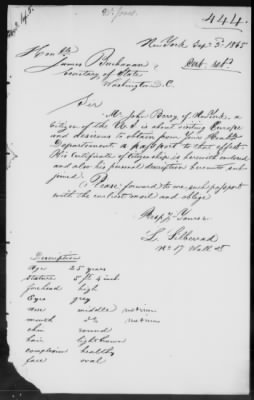 444.
New York Sep 3d 1845
Hon ble
James Buchanan
Secretary of State
Washington D.C.
Sir
Mr John Berry of New York, a
citizen of the U S is about visiting Europe
and desirous to obtain from Your Honble
Department a passport to that effect.
His Certificate of Citizenship is herewith enclosed
and also his personal description herewith sub
joined.
Please forward to me such passport
with the earliest mail and oblige
Respy Yours
L.
No 17 Wall St
Description
Age 25 years
Stature 5 ft 4 inch
forehead high
Eyes grey
nose middle
mouth do
chin round
hair light brown
complexion healthy
face oval